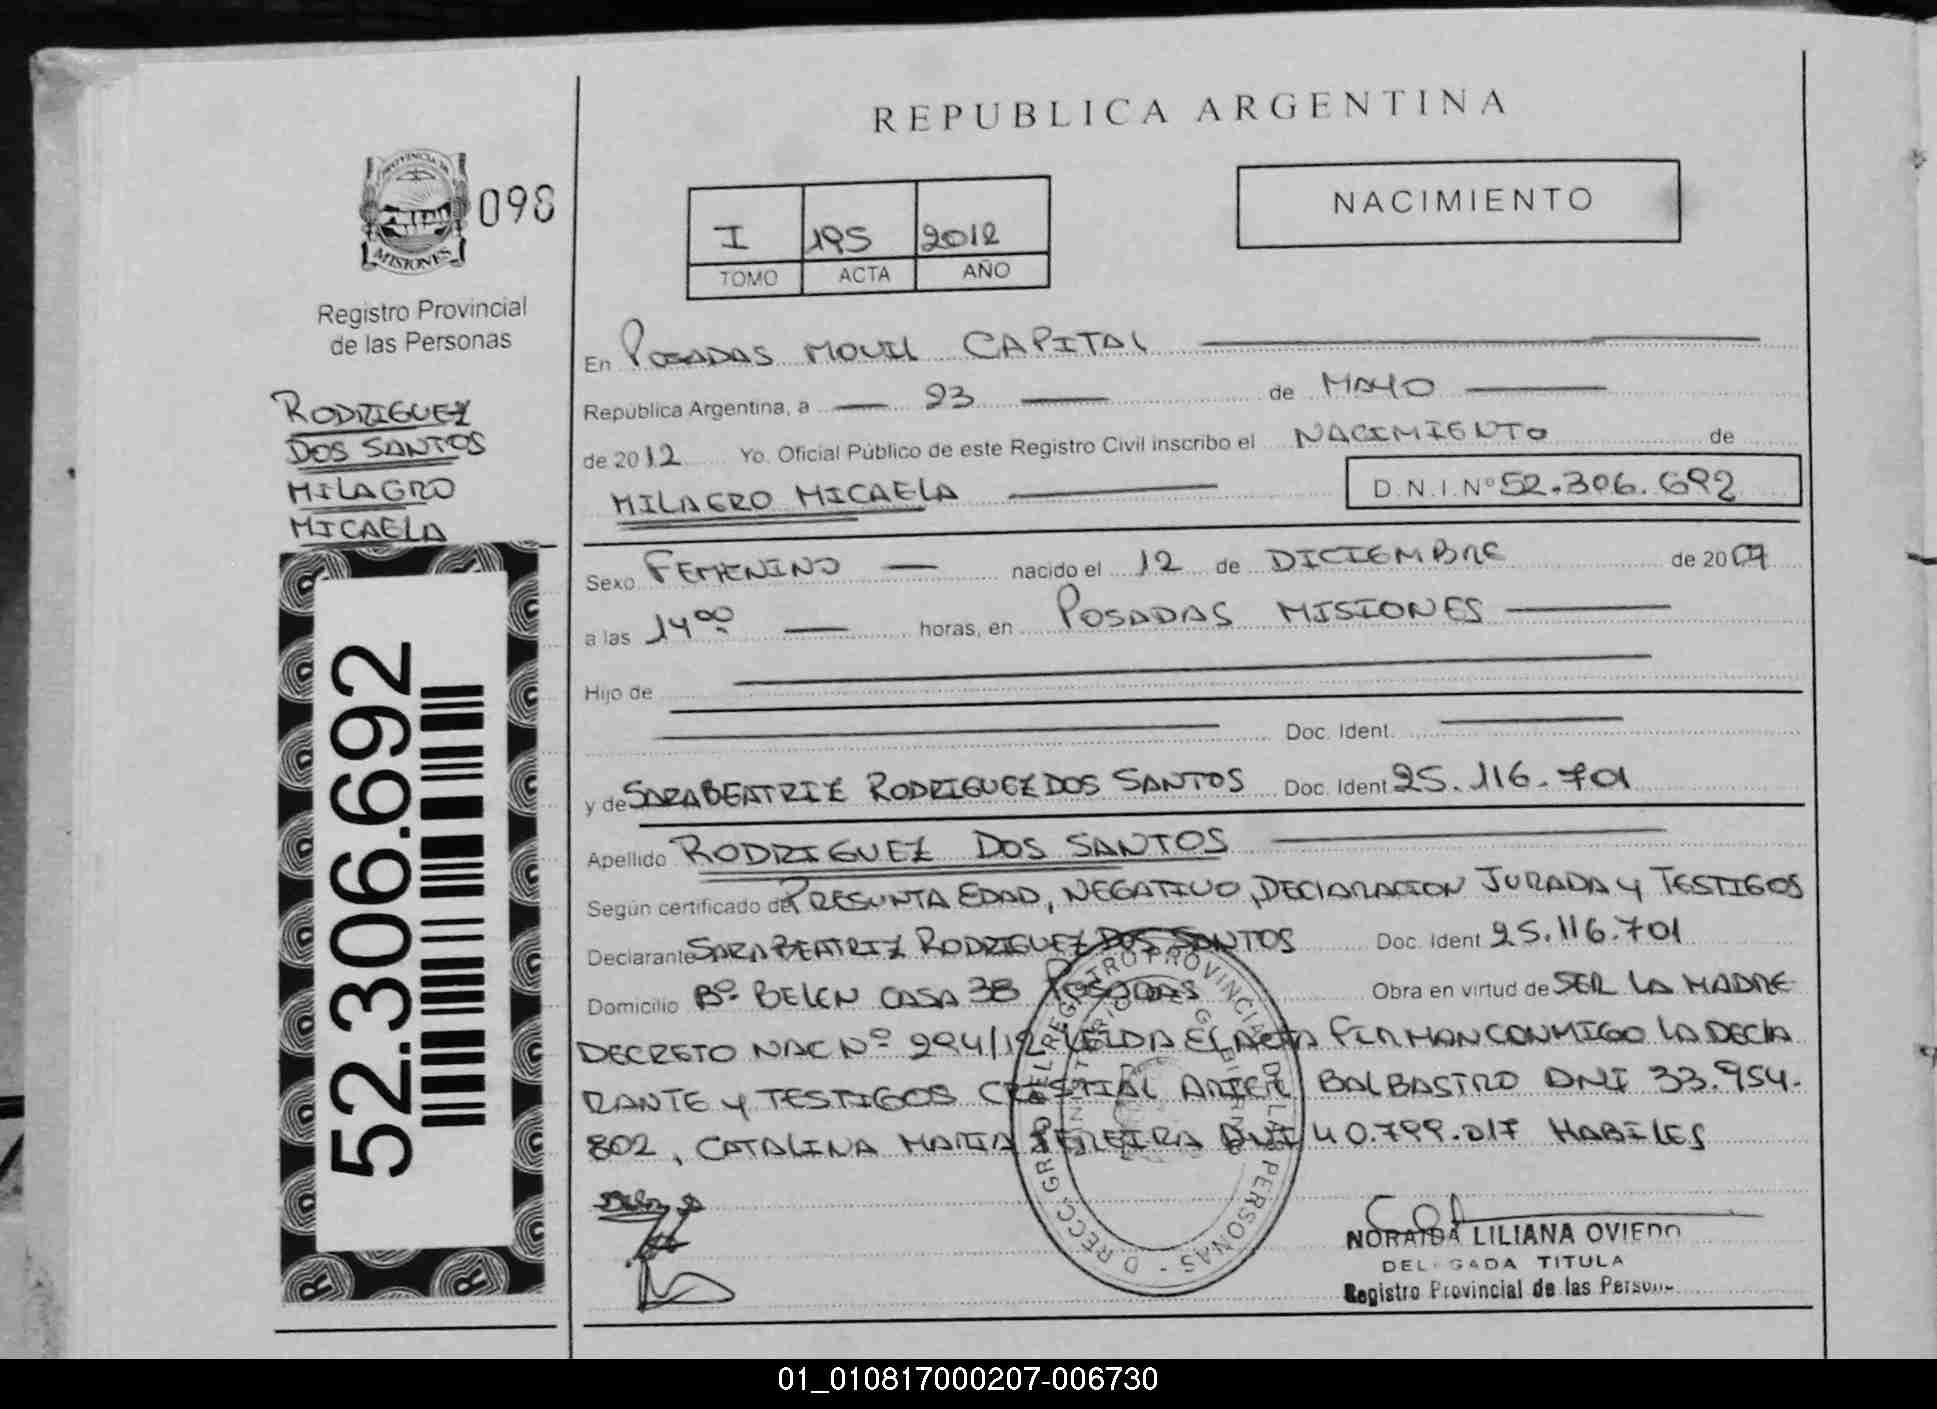 REPUBLICA ARGENTINA
PROVINCIA DE
MISIONES
098
Registro Provincial
de las Personas
RODRIGUEZ
DOS SANTOS
MILAGRO
MICAELA
52.306.692
I 195 2012
TOMO ACTA AÑO
NACIMIENTO
En POSADAS MOVIL CAPITAL
República Argentina, a 23 de MAYO
de 2012 Yo. Oficial Público de este Registro Civil inscribo el NACIMIENTO de
MILAGRO MICAELA D.N.I.Nº 52.306.692
Sexo FEMENINO nacido el 12 de DICIEMBRE de 2009
a las 14 00 horas, en POSADAS MISIONES
Hijo de
Doc. Ident.
y de SARA BEATRIZ RODRIGUEZ DOS SANTOS Doc. Ident 25.116.701
Apellido RODRIGUEZ DOS SANTOS
Según certificado de PRESUNTA EDAD, NEGATIVO, DECLARACION JURADA Y TESTIGOS
Declarante SARA BEATRIZ RODRIGUEZ DOS SANTOS Doc. Ident 25.116.701
Domicilio Bº BELEN CASA 38 POSADAS Obra en virtud de SER LA MADRE
DECRETO NAC Nº 294/12 LEIDA EL ACTA FIRMAN CONMIGO LA DECLA
RANTE Y TESTIGOS CRISTIAL ARIEL BALBASTRO DNI 33.954.
802, CATALINA MARIA PEREIRA DNI 40.799.017 HABILES
NORAIDA LILIANA OVIEDO
DEL GADA TITULA
Registro Provincial de las Person
01_010817000207-006730